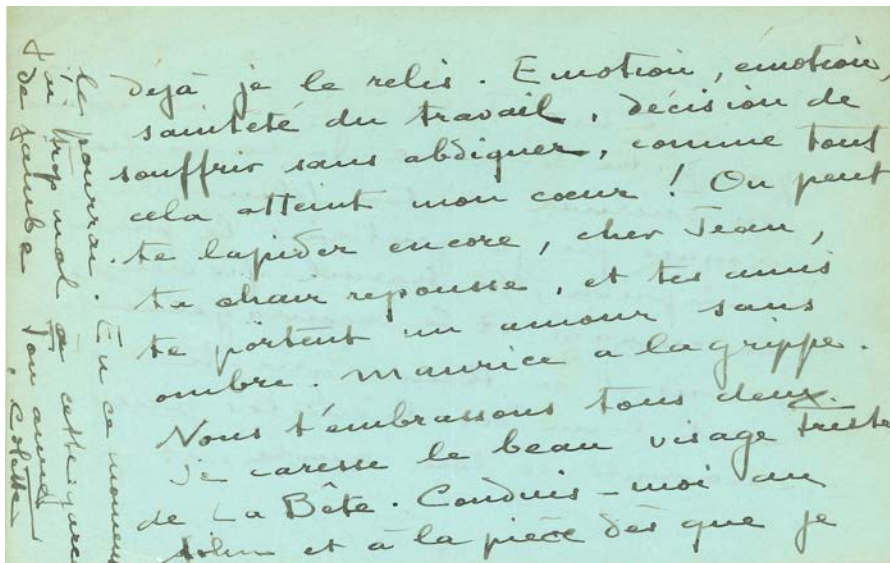 déjà je le relis. Emotion, émotion,
sainteté du travail, décision de
souffrir sans abdiquer, comme tout
cela atteint mon cœur ! On peut
te lapider encore, cher Jean,
ta chair repousse, et tes amis
te portent un amour sans
ombre. Maurice a la grippe.
Nous t'embrassons tous deux.
Je caresse le beau visage triste
de La Bête. Conduis-moi au
film et à la pièce dès que je
le pourrai. En ce moment
j'ai trop mal à cette garce
de jambe Ton amie
Colette